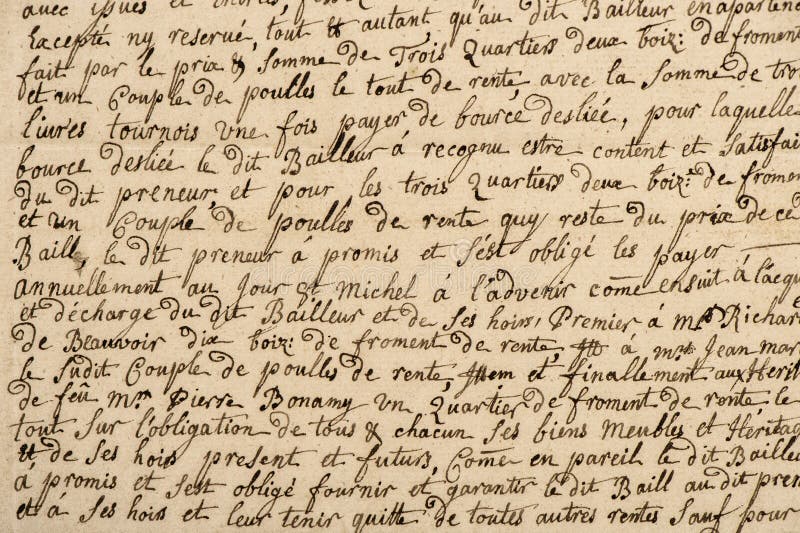 avec issues et
Excepté ny reservé, tout et autant qu'au dit Bailleur en apartene
fait par le prix & Somme de Trois Quartiers deux boiz: de froment
et un Couple de poulles le tout de rente, avec la Somme de tro
livres tournois une fois payer de bource desliée, pour laquelle
bource desliée le dit Bailleur à recognu estre content et Satisfai
du dit preneur, et pour les trois Quartiers deux boiz: de frome
et un Couple de poulles de rente quy reste du prix de ce
Baill, le dit preneur à promis et s'ést obligé les payer
annuellement au Jour St Michel à l'advenir come ensuit à l'acqu
et décharge du dit Bailleur et de Ses hoirs, Premier à Mr Richar
de Beauvoir dix boiz: de froment de rente, à Mr Jean Mar
le Sudit Couple de poulles de rente, Item et finallement aux Herit
de feû Mr Pierre Bonamy un Quartier de froment de rente, le
tout Sur l'obligation de tous & chacun Ses biens Meubles et Heritag
et de Ses hoirs present et futurs, Come en pareil le dit Bailleu
à promis et s'est obligé fournir et garantir le dit Baill au dit pren
et à Ses hoirs et leur tenir quitte de toutes autres rentes Sauf pour